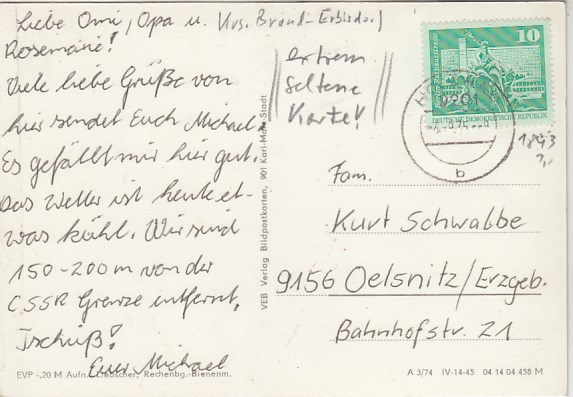 Liebe Omi, Opa u. Krs. Brand-Erbisdorf
Rosemarie!
Viele liebe Grüße von
hier sendet Euch Michael.
Es gefällt mir hier gut.
Das Wetter ist heute et-
was kühl. Wir sind
150-200 m von der
CSSR Grenze entfernt.
Tschüß!
Euer Michael
extrem
seltene
Karte!
EVP -,20 M Aufn. Liebscher, Rechenbg.-Bienenm.
VEB Verlag Bildpostkarten, 901 Karl-Marx-Stadt
10
DEUTSCHE DEMOKRATISCHE REPUBLIK
9201
b
Fam.
Kurt Schwabbe
9156 Oelsnitz/Erzgeb.
Bahnhofstr. 21
A 3/74 IV-14-45 04 14 04 458 M